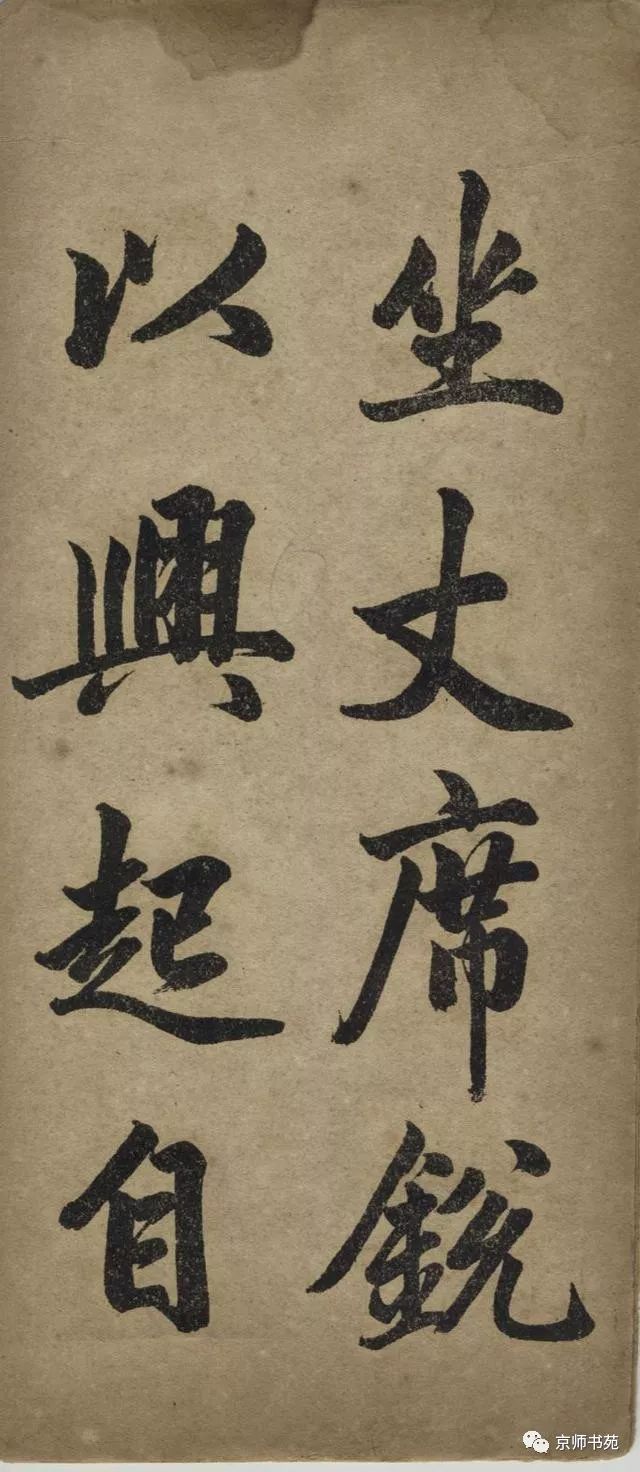 坐丈席銳
以興起自
京师书苑